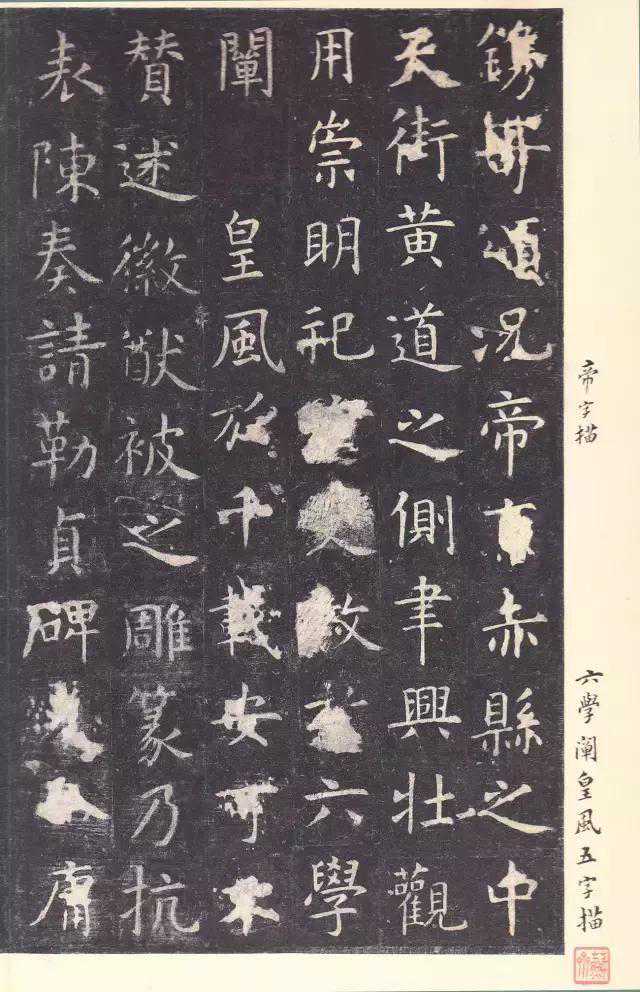 鐫頌況帝京赤縣之中
天街黃道之側聿興壯觀
用崇明祀文教於六學
闡皇風於千載安可不
賛述徽猷被之雕篆乃抗
表陳奏請勒貞碑庸
帝字描
六學闡皇風五字描